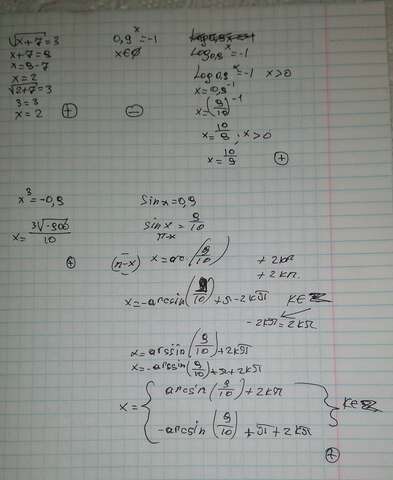 √x+7=3
x+7=9
x=9-7
x=2
√2+7=3
3=3
x=2
+
0,9^x=-1
x∈∅
−
Log0,9^x=-1
Log0,9^x=-1 x>0
x=0,9^-1
x=(9/10)^-1
x=10/9; x>0
x=10/9
+
x^3=-0,9
x=3√-900/10
+
Sinx=0,9
sinx=9/10
π-x
(π-x) x=arc(9/10) +2kπ
+2kπ
x=-arcsin(9/10)+π-2kπ k∈Z
-2kπ=2kπ
x=arcsin(9/10)+2kπ
x=-arcsin(9/10)+π+2kπ
x={ arcsin(9/10)+2kπ
-arcsin(9/10)+π+2kπ } k∈Z
+